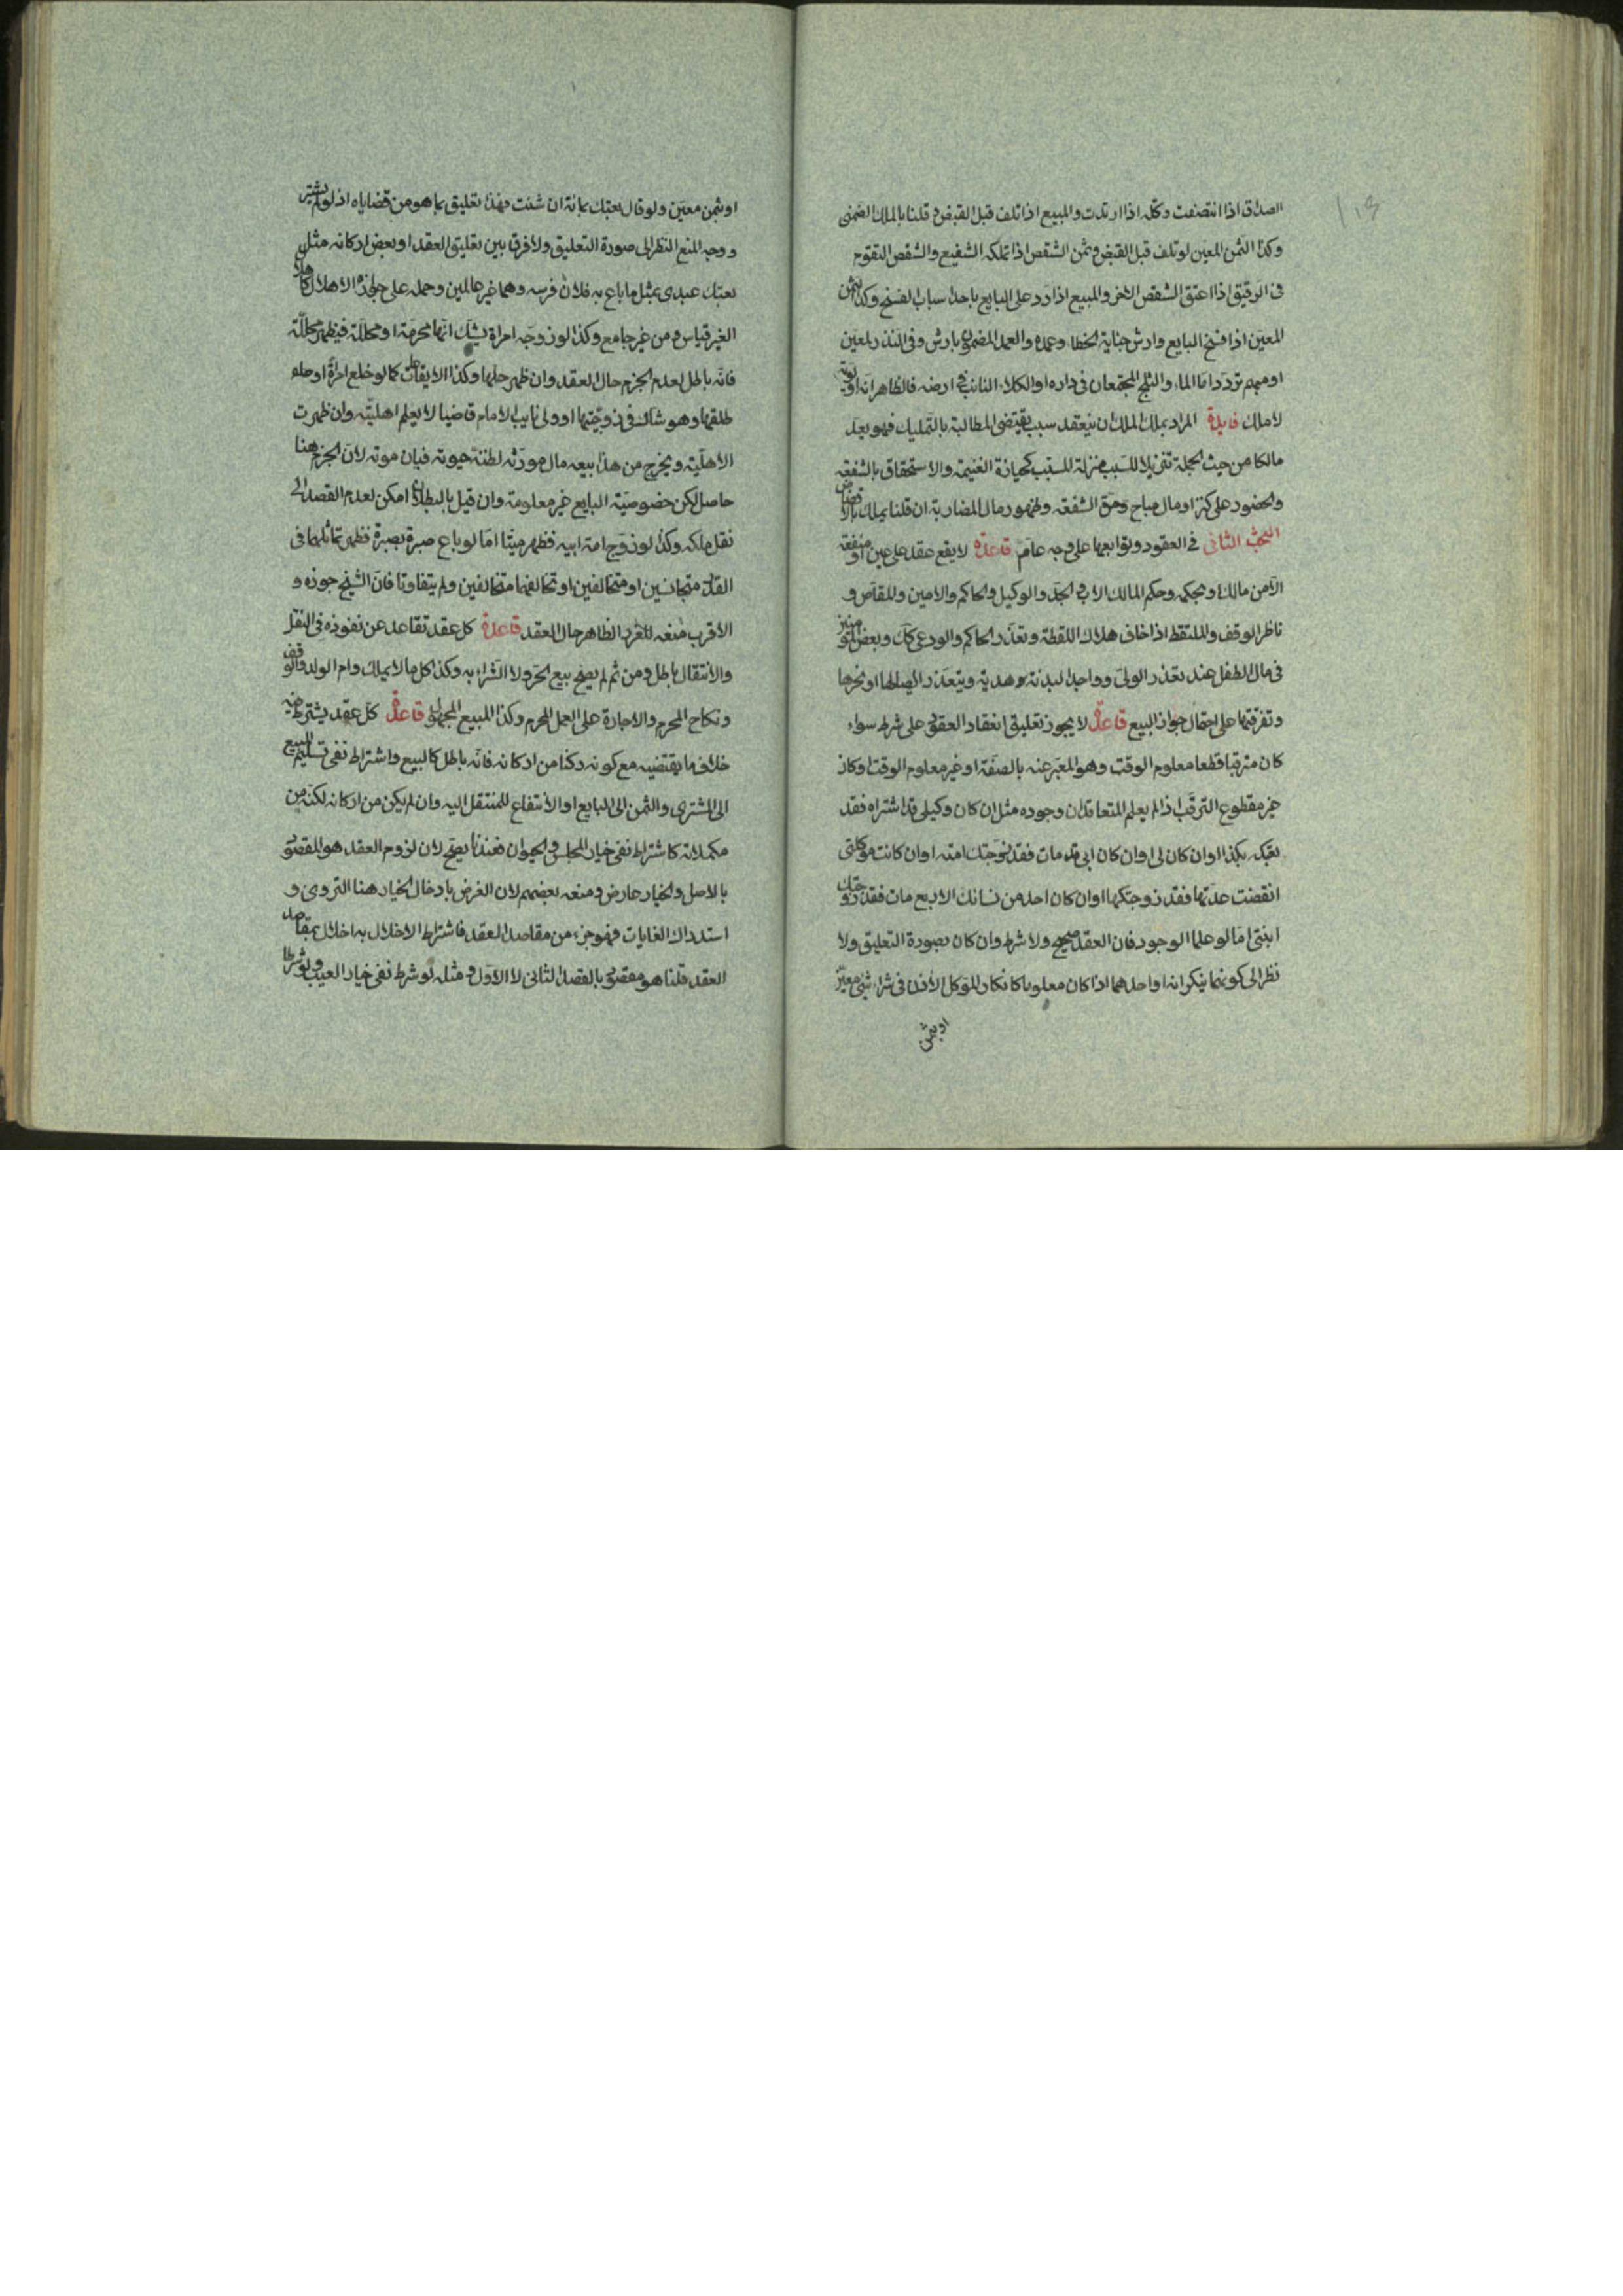 الصداق اذا انتصفت وكله اذا ارتدت والمبيع اذا تلف قبل القبض وقلنا بالملك الضمنى
وكذا الثمن المعين لو تلف قبل القبض وثمن الشقص اذا تملكه الشفيع والشقص
فى الرقيق اذا اعتق الشقص الاخر والمبيع اذا رد على البايع باحد اسباب الفسخ وكذا الثمن
المعين اذا فسخ البايع وارش جناية الخطاء وعمده والعمد المضمون بارش وفى النذر لمعين
او مبهم تردد اما الماء والثلج المجتمعان فى داره او الكلاء النابت فى ارضه فالظاهر انه اولوية
لا ملك فايدة المراد بملك الملك ان ينعقد سبب يقتضى المطالبة بالتمليك فهو يعد
مالكا من حيث الجملة تنزيلا للسبب منزلة المسبب كحيازة الغنيمة والاستحقاق بالشفعة
والحضور على كنز او مال مباح وحق الشفعة وظهور مال المضاربة ان قلنا يملك بالانضاض
البحث الثانى فى العقود وتوابعها على وجه عام قاعدة لا يقع عقد على عين او منفعة
الا من مالك او بحكمه وحكم المالك الاب والجد والوكيل والحاكم والامين والمقاص و
ناظر الوقف والملتقط اذا خاف هلاك اللقطة وتعذر الحاكم والودعى كك وبعض المؤمنين
فى مال الطفل عند تعذر الولى وواجد البدنة هدية ويتعذر ايصالها او نحرها
وتفرقتها على احتمال جواز البيع قاعدة لا يجوز تعليق انعقاد العقود على شرط سواء
كان مترقبا قطعا معلوم الوقت وهو المعبر عنه بالصفة او غير معلوم الوقت او كان
غير مقطوع الترقب اذا لم يعلم المتعاقدان وجوده مثل ان كان وكيلى قد اشتراه فقد
بعتكه بكذا او ان كان لى او ان كان ابى قد مات فقد زوجتك امته او ان كانت موكلتى
انقضت عدتها فقد زوجتكها او ان كان احد من نسائك الاربع مات فقد زوجتك
ابنتى اما لو علما الوجود فان العقد صحيح ولا شرط وان كان بصورة التعليق ولا
نظر الى كونهما ينكرانه او احدهما اذا كان معلوما كانكار الموكل الاذن فى شراء شئ معين
او بثمن
او بثمن معين ولو قال بعتك بمائة ان شئت فهذا تعليق بما هو من قضاياه اذ لو لم يشتر
ووجه المنع النظر الى صورة التعليق ولا فرق بين تعليق العقد او بعض اركانه مثل
بعتك عبدى بمثل ما باع به فلان فرسه وهما غير عالمين وحمله على جوازه الاهلال كاهلال
الغير قياس من غير جامع وكذا لو زوجه امراة يشك انها محرمة او محللة فيظهر محللة
فانه باطل لعدم الجزم حال العقد وان ظهر حلها وكذا الايقاعات كما لو خلع امراة او
طلقها وهو شاك فى زوجيتها او ولى نايب الامام قاضيا لا يعلم اهليته وان ظهرت
الاهلية ويخرج من هذا بيعه مال مورثه لظنه حيوته فبان موته لان الجزم هنا
حاصل لكن خصوصية البايع غير معلومة وان قيل بالبطلان امكن لعدم القصد الى
نقل ملكه وكذا لو زوج امة ابيه فظهر ميتا اما لو باع صبرة بصبرة فظهر تماثلهما فى
القدر متجانسين او متخالفين او تخالفهما متخالفين ولم يتفاوتا فان الشيخ جوزه و
الاقرب منعه للغرر الظاهر حال العقد قاعدة كل عقد تقاعد عن نفوذه فى النقل
والانتقال باطل ومن ثم لم يصح بيع الحر ولا الشراء به وكذا كل ما لا يملك وام الولد والوقف
ونكاح المحرم والاجارة على العمل المحرم وكذا المبيع المجهول قاعدة كل عقد يشترط فيه
خلاف ما يقتضيه مع كونه ركنا من اركانه فانه باطل كالبيع واشتراط نفى تسليم المبيع
الى المشترى والثمن الى البايع او الانتفاع للمنتقل اليه وان لم يكن من اركانه لكنه من
مكملاته كاشتراط نفى خيار المجلس والحيوان فعندنا يصح لان لزوم العقد هو المقصود
بالاصل والخيار عارض ومنعه بعضهم لان الغرض بادخال الخيار هنا التروى و
استدراك الغايات فهو جزء من مقاصد العقد فاشتراط الاخلال به اخلال بمقاصد
العقد قلنا هو مقصود بالقصد الثانى لا الاول ومثله لو شرط نفى خيار العيب ولو شرط